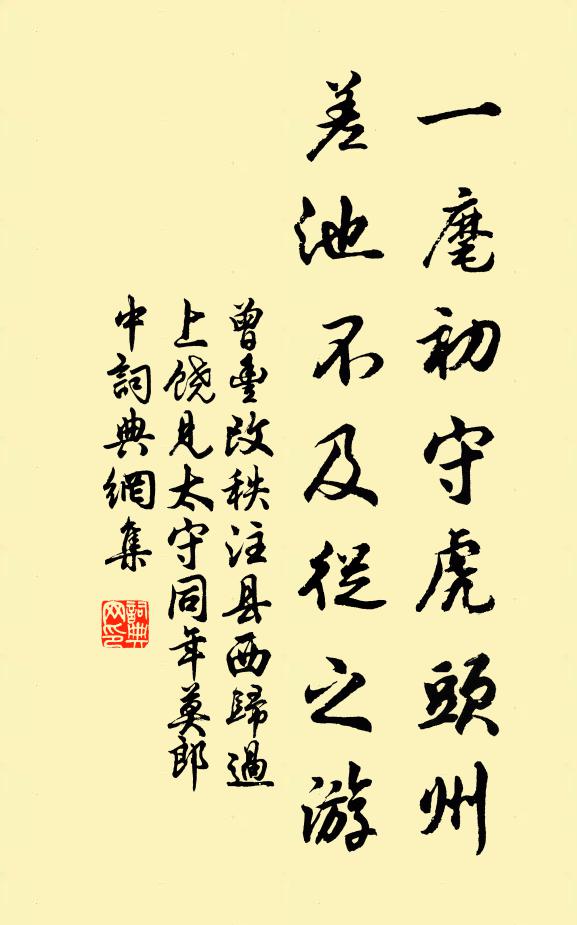 一麾初守虎頭州
差池不及從之游
曾豐改秩注县西歸過
上饶見太守同年莫郎
中詞典網集
詞典
网印